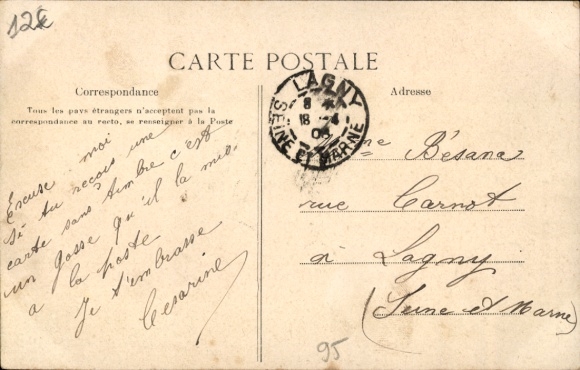 12€
CARTE POSTALE
Correspondance
Tous les pays étrangers n'acceptent pas la
correspondance au recto, se renseigner à la Poste
Excuse moi
si tu reçois une
carte sans timbre c'est
un gosse qu'il la mis
a la poste
Je t'embrasse
Cesarine
LAGNY
SEINE ET MARNE
8
18 - 4
Adresse
me Bésana
rue Carnot
à Lagny
(Seine et Marne)
95